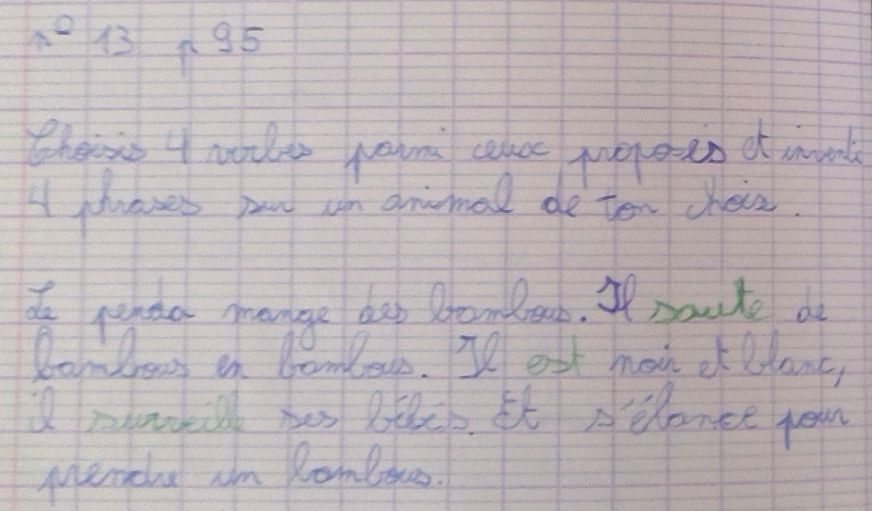 n° 13 p 95
Choisis 4 verbes parmi ceux proposés et invente
4 phrases sur un animal de ton choix.
Le penda mange des bambous. Il saute de
bambous en bambous. Il est noir et blanc,
il surveille ses bébés. Et s'élance pour
prendre un bambous.